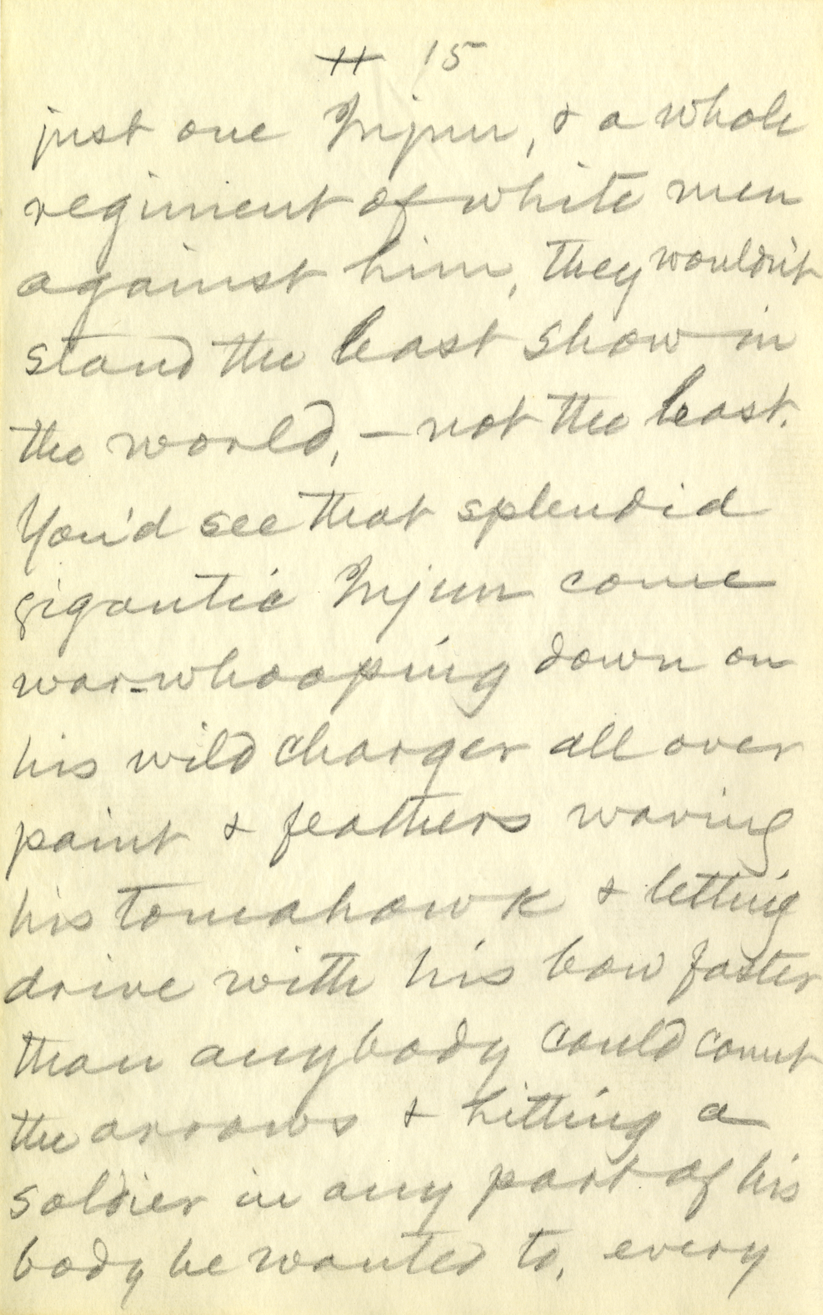 11 15
just one Injun, & a whole
regiment of white men
against him, they wouldn't
stand the least show in
the world, — not the least.
You'd see that splendid
gigantic Injun come
war-whooping down on
his wild charger all over
paint & feathers waving
his tomahawk & letting
drive with his bow faster
than anybody could count
the arrows & hitting a
soldier in any part of his
body he wanted to, every